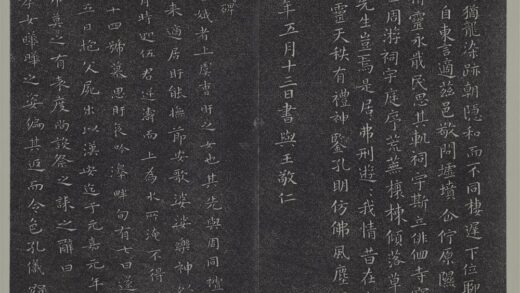 猶龍染跡朝隱和而不同棲遲下位聊
自東言適茲邑敬問墟墳企佇原隰
靈永戢民思其軌祠宇斯立俳佪寺寢
周游祠宇庭序荒蕪榱棟傾落草
先生豈焉是居弗刑遊我情昔在
靈天秩有禮神鑒孔明仿佛風塵
年五月十三日書與王敬仁
碑
娥者上虞曹盱之女也其先與周同
來適居盱能撫節安歌婆娑樂神以
時迎伍君逆濤而上為水所淹不得
十四號慕思盱哀吟澤畔旬有七日遂
五日抱父屍出以漢安迄于元嘉元年
墓之有表度尚設祭之誄之辭曰
孝女曄曄之姿偏其返而令色孔儀